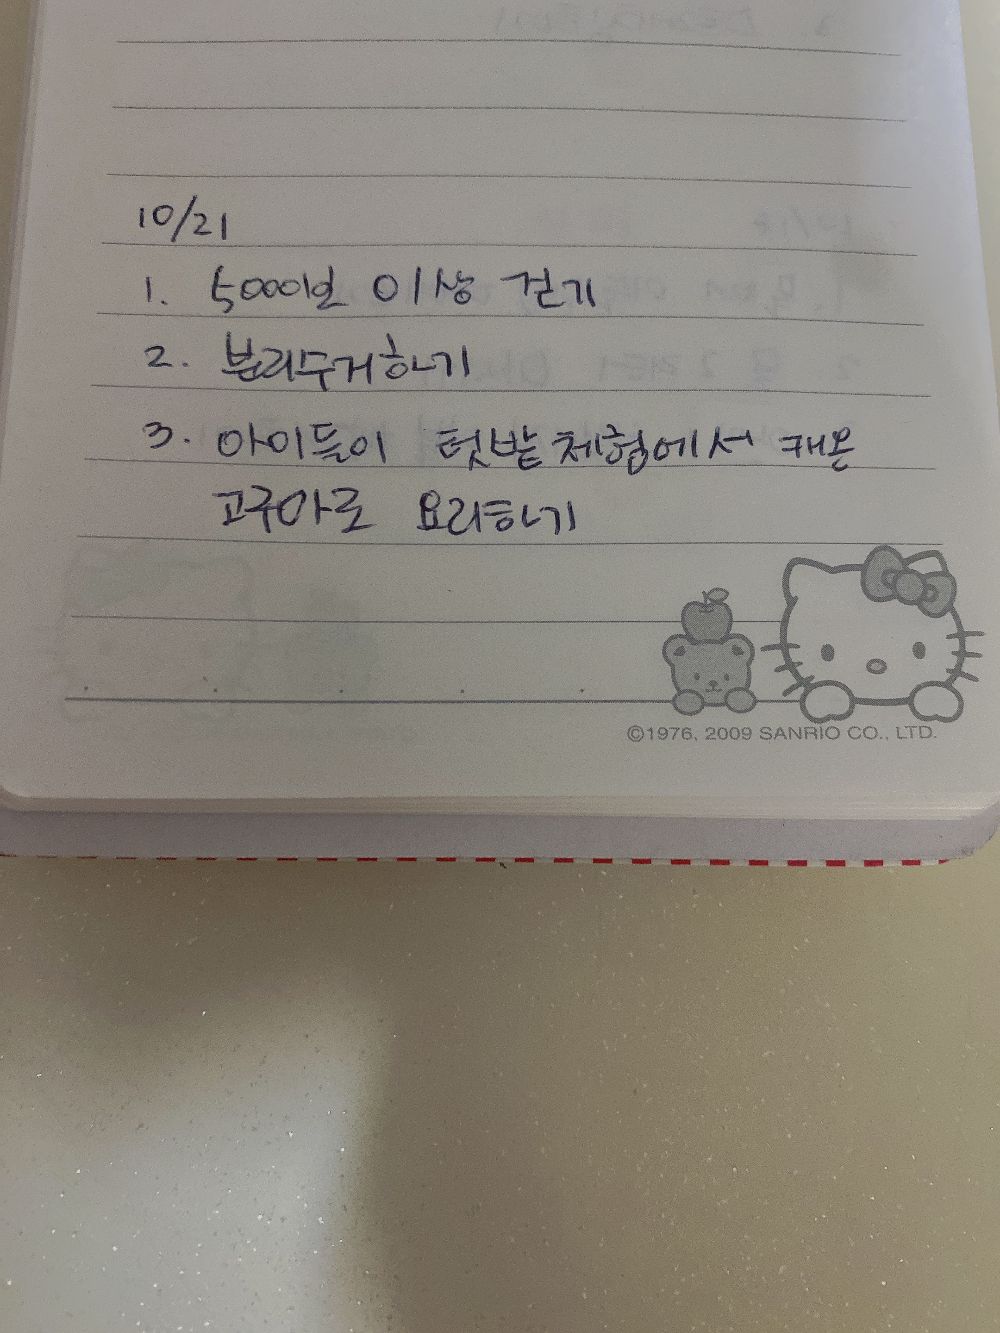 10/21
1. 5000보 이상 걷기
2. 분리수거하기
3. 아이들이 텃밭 체험에서 캐온
고구마로 요리하기
©1976, 2009 SANRIO CO., LTD.